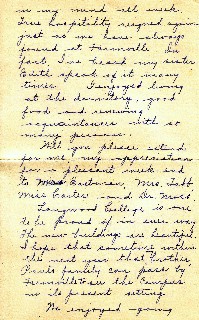 in my mind all week.
True hospitality reigned again
just as we have always
found at Farmville. In
fact, I've heard my sister
Edith speak of it many
times. I enjoyed living
at the dormitory, good
food and renewing
acquaintances with so
many persons.
Will you please extend
for me, my appreciation
for a pleasant week end
to Miss Carter and Dr.
Longwood College is one
to be proud of in every way.
The new buildings are beautiful.
I hope that sometime within
the next year that brother
family can pass by
Farmville to see the Campus
in its present setting.
We enjoyed going